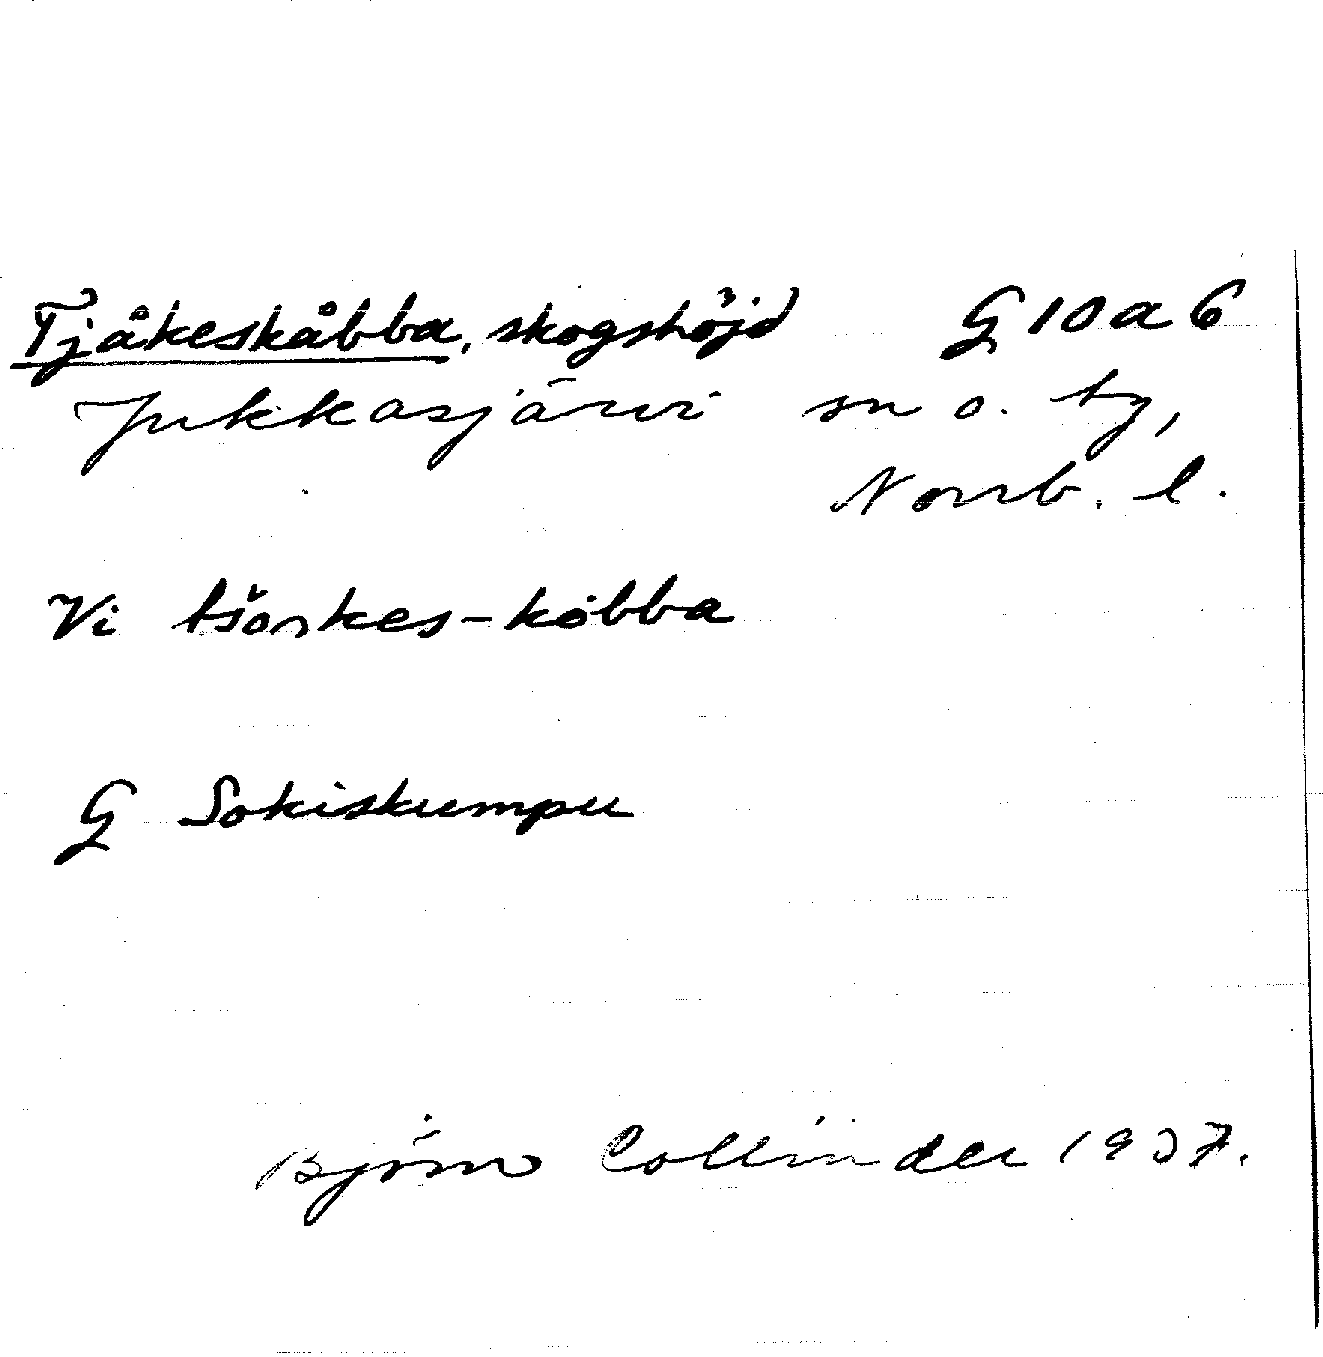 Tjåkeskåbba, skogshöjd G 10 a 6
Jukkasjärvi sn o. tg,
Norrb. l.
Vi
G Sokiskumpu
Björn Collinder 1937.